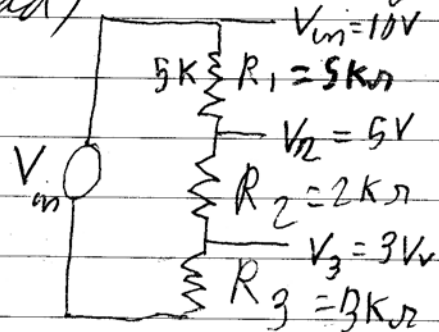 Vin=10V
5K R1 = 5KΩ
V2 = 5V
Vin
R2 = 2KΩ
V3 = 3V
R3 = 3KΩ